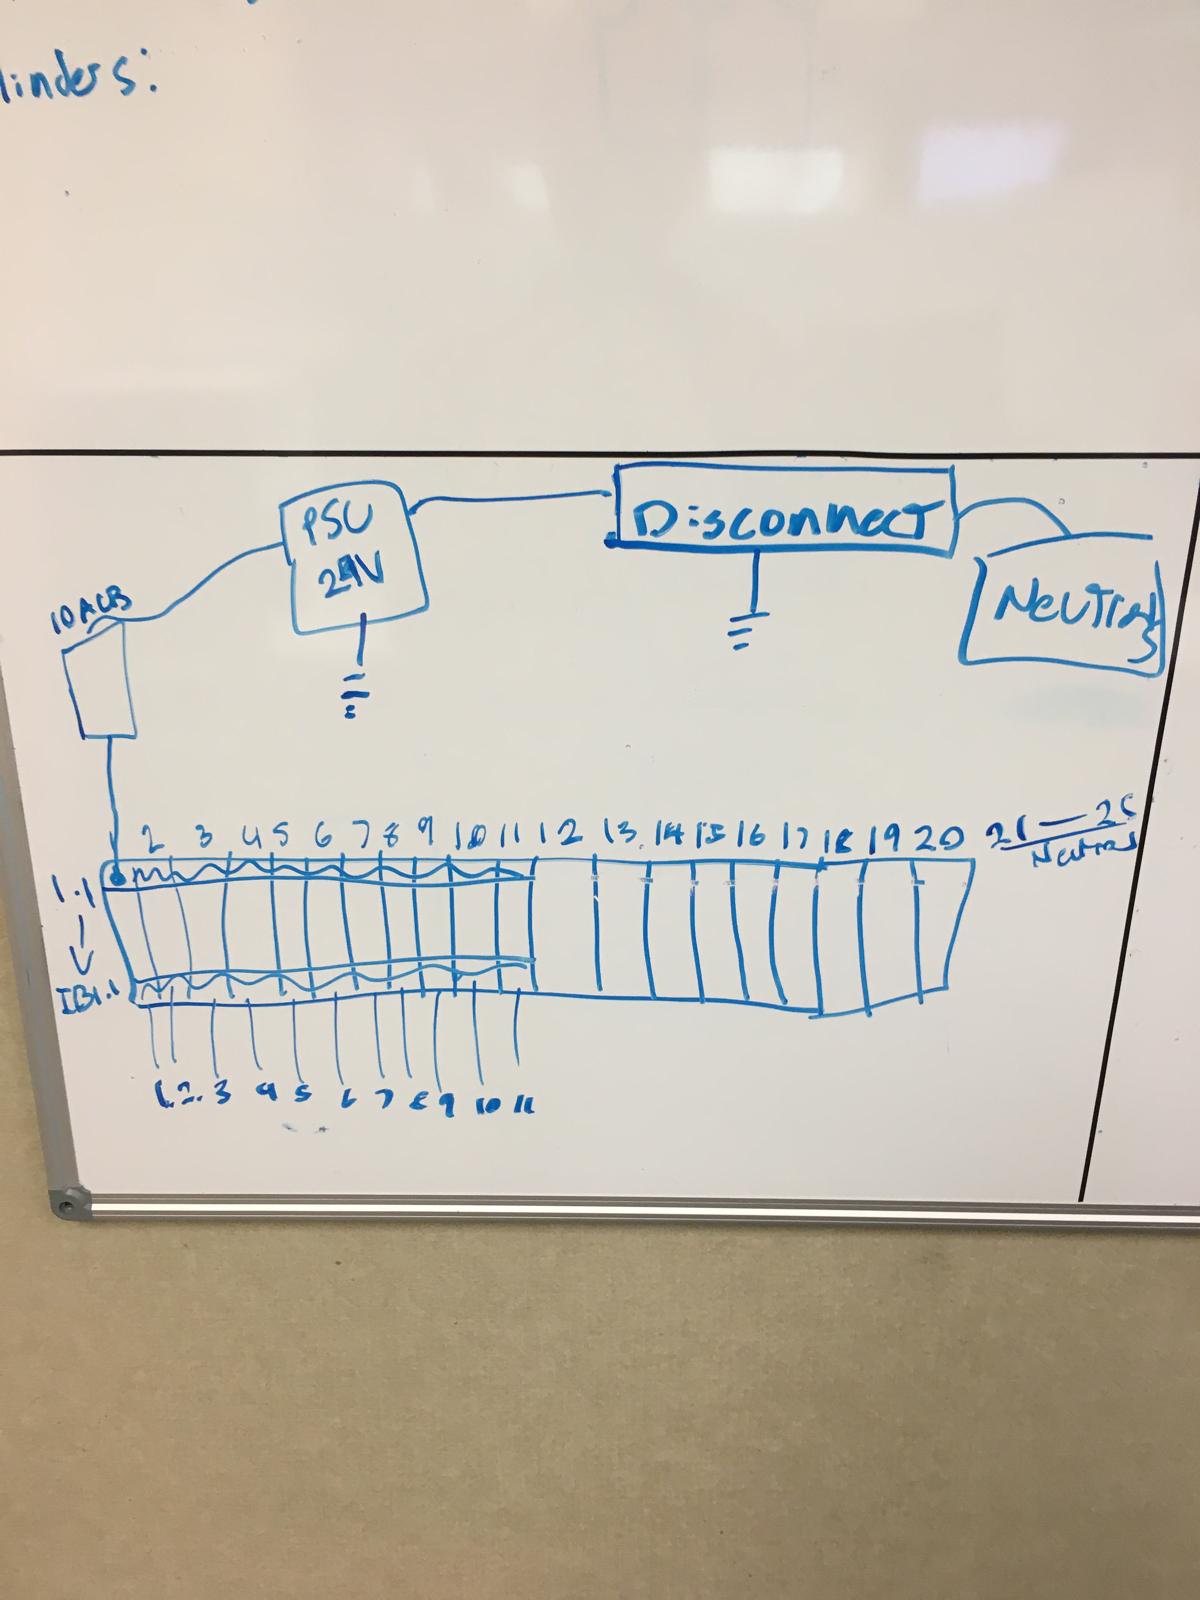 linders:
PSU
24V
Disconnect
Neutrals
10 A CB
2 3 4 5 6 7 8 9 10 11 12 13 14 15 16 17 18 19 20 21 — 25
Neutral
1.1
IB1.1
1 2 3 4 5 6 7 8 9 10 11